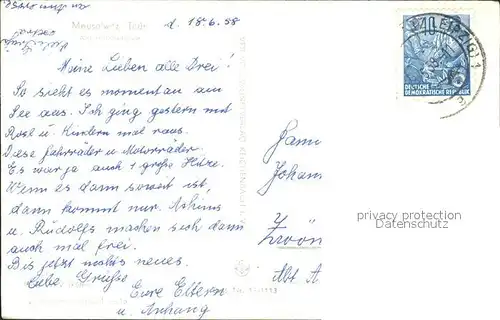 Meuselwitz Thür.
d. 18.6.58
Meine Lieben alle Drei!
So sieht es momentan am
See aus. Ich ging gestern mit
Rosl u. Kindern mal raus.
Diese Fahrräder u Motorräder.
Es war ja auch 1 große Hitze.
Wenn es dann soweit ist,
dann kommt nur.
u. Rudolfs machen sich dann
auch mal frei.
Bis jetzt nichts neues.
Liebe Grüße
Eure Eltern
u. Anhang
LEIPZIG
10
DEUTSCHE
DEMOKRATISCHE REPUBLIK
Fam
Johan
Zwön
Abt A
privacy protection
Datenschutz